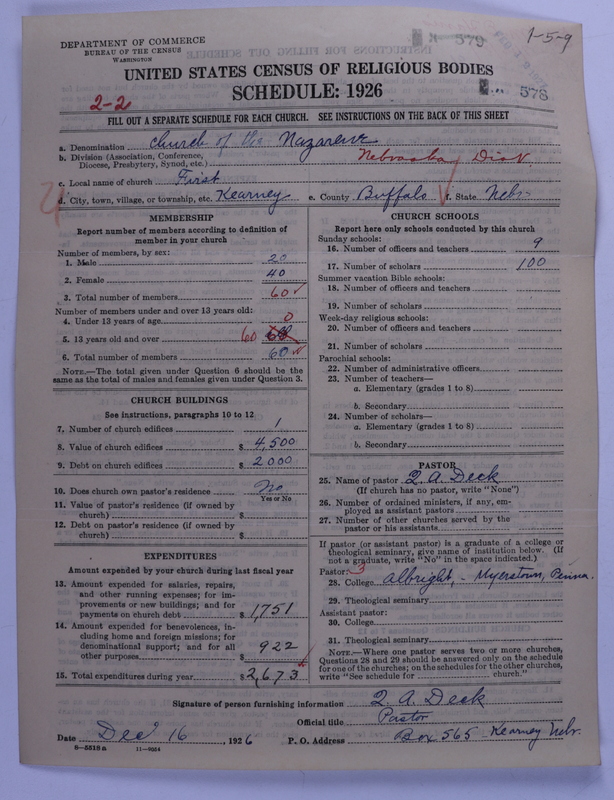 DEPARTMENT OF COMMERCE
BUREAU OF THE CENSUS
WASHINGTON
579
1-5-9
UNITED STATES CENSUS OF RELIGIOUS BODIES
SCHEDULE: 1926
578
2-2
FILL OUT A SEPARATE SCHEDULE FOR EACH CHURCH. SEE INSTRUCTIONS ON THE BACK OF THIS SHEET
a. Denomination Church of the Nazarene
b. Division (Association, Conference, Diocese, Presbytery, Synod, etc.) Nebraska Dist
c. Local name of church First
d. City, town, village, or township, etc. Kearney e. County Buffalo f. State Nebr.
MEMBERSHIP
Report number of members according to definition of member in your church
Number of members, by sex:
1. Male 20
2. Female 40
3. Total number of members 60
Number of members under and over 13 years old:
4. Under 13 years of age 0
5. 13 years old and over 60
6. Total number of members 60
NOTE.—The total given under Question 6 should be the same as the total of males and females given under Question 3.
CHURCH BUILDINGS
See instructions, paragraphs 10 to 12
7. Number of church edifices 1
8. Value of church edifices $ 4,500
9. Debt on church edifices $ 2000
10. Does church own pastor's residence No
Yes or No
11. Value of pastor's residence (if owned by church) $
12. Debt on pastor's residence (if owned by church) $
EXPENDITURES
Amount expended by your church during last fiscal year
13. Amount expended for salaries, repairs, and other running expenses; for improvements or new buildings; and for payments on church debt $ 1,751
14. Amount expended for benevolences, including home and foreign missions; for denominational support; and for all other purposes $ 922
15. Total expenditures during year $ 2,673
CHURCH SCHOOLS
Report here only schools conducted by this church
Sunday schools:
16. Number of officers and teachers 9
17. Number of scholars 100
Summer vacation Bible schools:
18. Number of officers and teachers
19. Number of scholars
Week-day religious schools:
20. Number of officers and teachers
21. Number of scholars
Parochial schools:
22. Number of administrative officers
23. Number of teachers—
a. Elementary (grades 1 to 8)
b. Secondary
24. Number of scholars—
a. Elementary (grades 1 to 8)
b. Secondary
PASTOR
25. Name of pastor Q. A. Deck
(If church has no pastor, write "None")
26. Number of ordained ministers, if any, employed as assistant pastors
27. Number of other churches served by the pastor or his assistants
If pastor (or assistant pastor) is a graduate of a college or theological seminary, give name of institution below. (If not a graduate, write "No" in the space indicated.)
Pastor: 3
28. College Albright, - Myerstown, Penna.
29. Theological seminary
Assistant pastor:
30. College
31. Theological seminary
NOTE.—Where one pastor serves two or more churches, Questions 28 and 29 should be answered only on the schedule for one of the churches; on the schedules for the other churches, write "See schedule for church."
Signature of person furnishing information Q. A. Deck
Official title Pastor
Date Dec 16, 1926 P. O. Address Box 565 Kearney Nebr.
8—5518a 11—9054